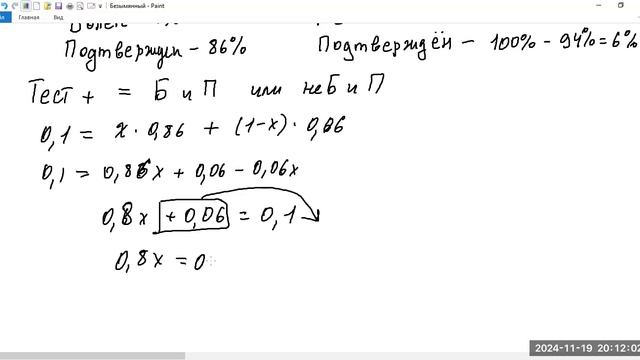 Безымянный - Paint
Главная Вид
Подтвержден - 86% Подтверждён - 100% - 94% = 6%
Тест + = Б и П или не Б и П
0,1 = x · 0,86 + (1-x) · 0,06
0,1 = 0,86x + 0,06 - 0,06x
0,8x + 0,06 = 0,1
0,8x = 0
2024-11-19 20:12:02